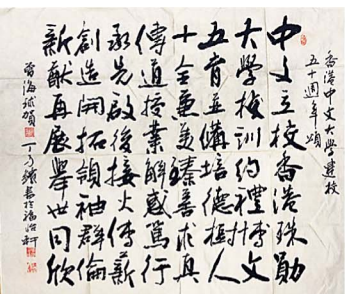 香港中文大學建校
五十週年頌
中文立校香港殊勛
大学校训约禮博文
五育並講培德樹人
十全兼美臻善求真
傳道授業解惑篤行
承先啟後接火傳薪
創造開拓領袖群倫
新猷再展舉世同欣